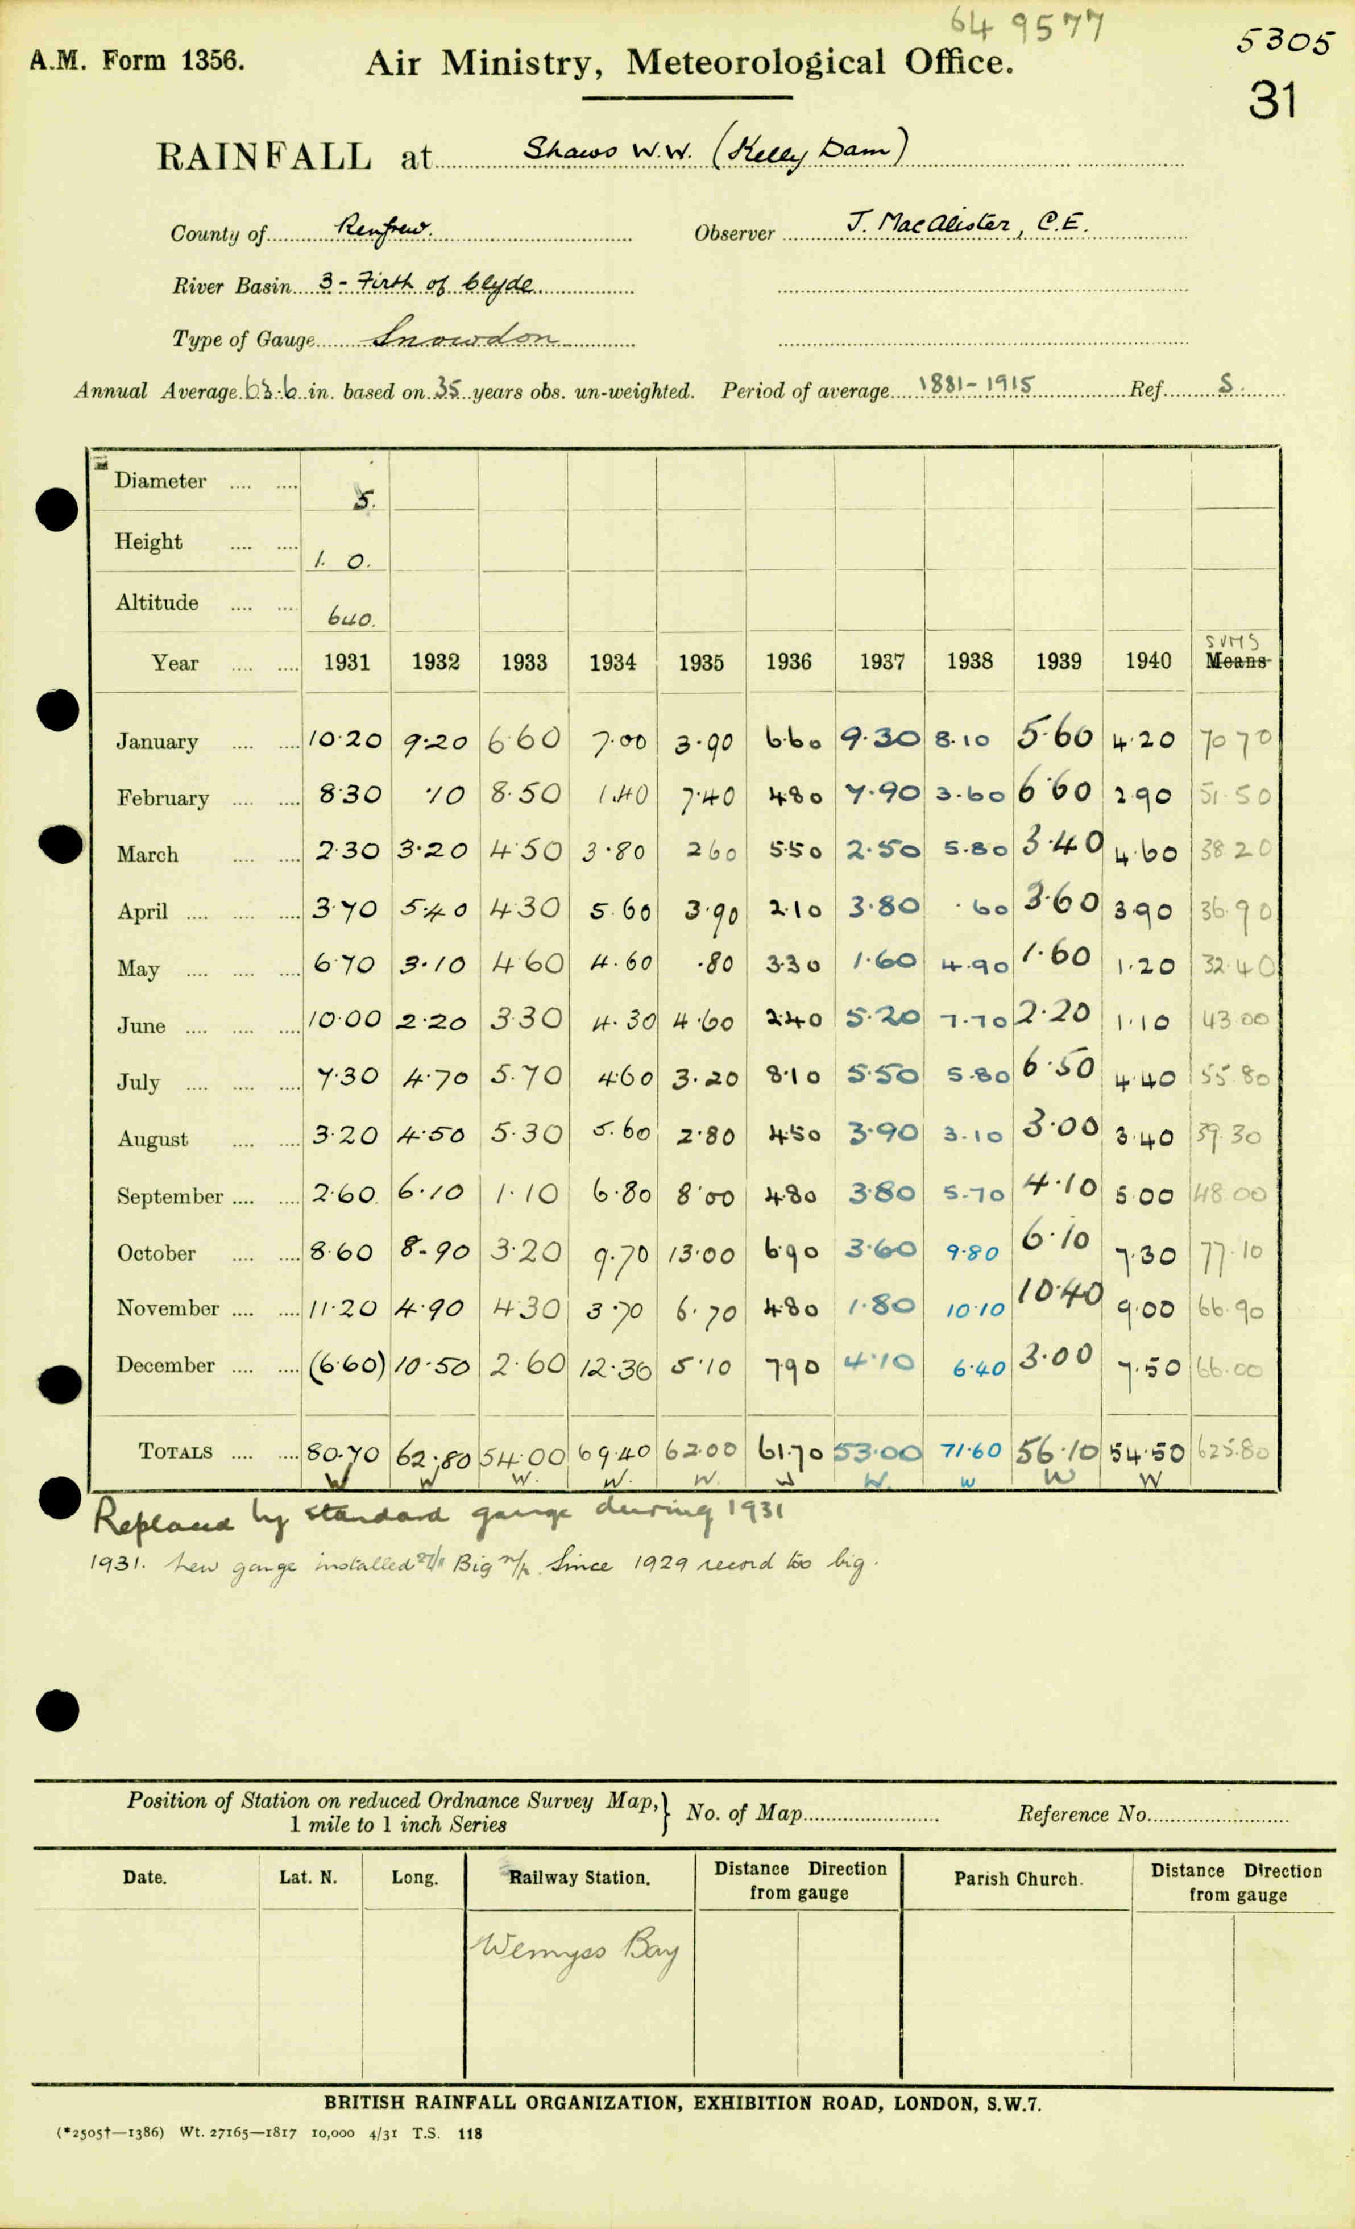 64 9577
5305
A.M. Form 1356. Air Ministry, Meteorological Office.
31
RAINFALL at Shaws W.W. (Kelly Dam)
County of Renfrew. Observer J. MacAlister, C.E.
River Basin 3 - Firth of Clyde
Type of Gauge Snowdon
Annual Average 63.6 in. based on 35 years obs. un-weighted. Period of average 1881-1915 Ref. S.
Diameter .... .... 5.
Height .... .... 1. 0.
Altitude .... .... 640.
SUMS
Year .... .... 1931 1932 1933 1934 1935 1936 1937 1938 1939 1940 Means
January .... .... 10.20 9.20 6.60 7.00 3.90 6.60 9.30 8.10 5.60 4.20 70 70
February .... .... 8.30 .10 8.50 1.40 7.40 4.80 7.90 3.60 6.60 2.90 51.50
March .... .... 2.30 3.20 4.50 3.80 2.60 5.50 2.50 5.80 3.40 4.60 38 20
April .... .... .... 3.70 5.40 4.30 5.60 3.90 2.10 3.80 .60 3.60 3.90 36.90
May .... .... .... 6.70 3.10 4.60 4.60 .80 3.30 1.60 4.90 1.60 1.20 32.40
June .... .... .... 10.00 2.20 3.30 4.30 4.60 2.40 5.20 7.70 2.20 1.10 43.00
July .... .... .... 7.30 4.70 5.70 4.60 3.20 8.10 5.50 5.80 6.50 4.40 55.80
August .... .... 3.20 4.50 5.30 5.60 2.80 4.50 3.90 3.10 3.00 3.40 39.30
September .... .... 2.60 6.10 1.10 6.80 8.00 4.80 3.80 5.70 4.10 5.00 48.00
October .... .... 8.60 8.90 3.20 9.70 13.00 6.90 3.60 9.80 6.10 7.30 77.10
November .... .... 11.20 4.90 4.30 3.70 6.70 4.80 1.80 10.10 10.40 9.00 66.90
December .... .... (6.60) 10.50 2.60 12.30 5.10 7.90 4.10 6.40 3.00 7.50 66.00
TOTALS .... .... 80.70 62.80 54.00 69.40 62.00 61.70 53.00 71.60 56.10 54.50 625.80
W W W. W. W. W W. W W W
Replaced by standard gauge during 1931
1931. New gauge installed Big Since 1929 record too big.
Position of Station on reduced Ordnance Survey Map,} No. of Map Reference No.
1 mile to 1 inch Series
Date. Lat. N. Long. Railway Station. Distance Direction Parish Church. Distance Direction
from gauge from gauge
Wemyss Bay
BRITISH RAINFALL ORGANIZATION, EXHIBITION ROAD, LONDON, S.W.7.
(*2505†—1386) Wt. 27165—1817 10,000 4/31 T.S. 118